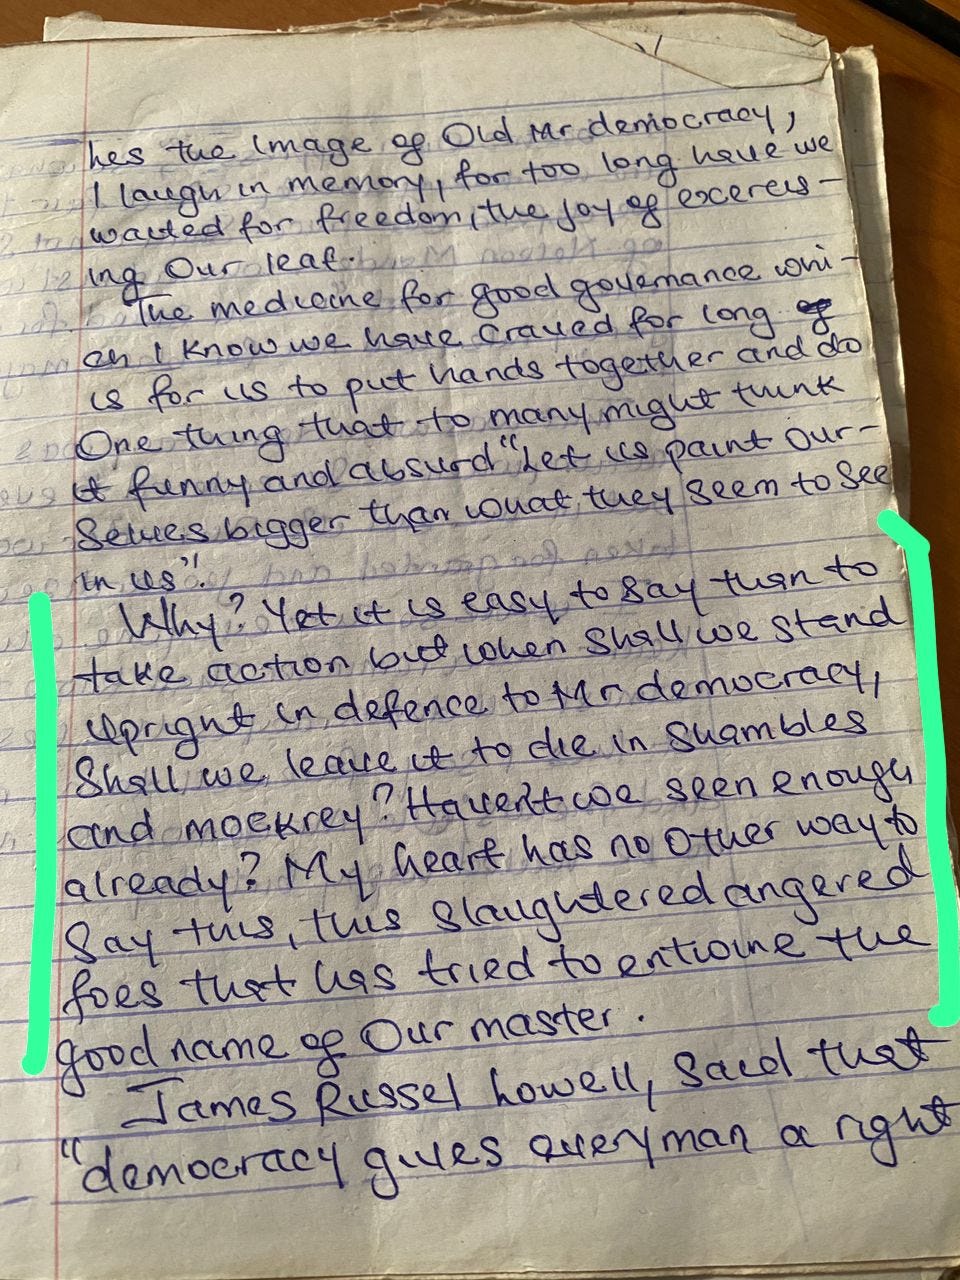 hes the image of Old Mr democracy,
I laugh in memory, for too long have we
waited for freedom, the joy of excercis-
ing Our leaf.
The medicine for good governance whi-
ch I know we have craved for long
is for us to put hands together and do
One thing that to many might think
it funny and absurd "Let us paint our-
selves bigger than what they seem to see
in us".
Why? Yet it is easy to say than to
take action but when shall we stand
upright in defence to Mr democracy,
Shall we leave it to die in shambles
and mockrey? Haven't we seen enough
already? My heart has no other way to
Say this, this slaughtered angered
foes that has tried to entwine the
good name of Our master.
James Russel Lowell, said that
"democracy gives every man a right